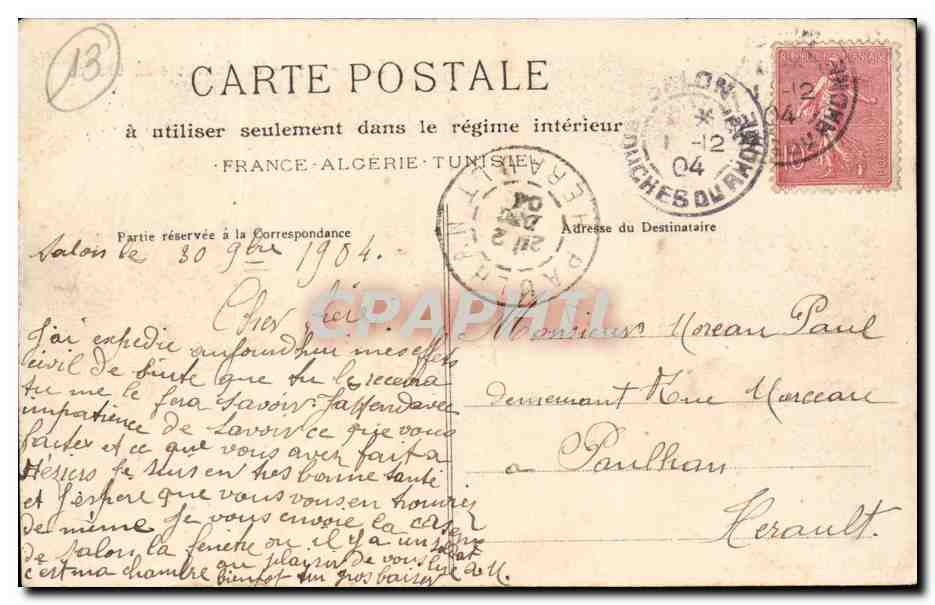 13
CARTE POSTALE
à utiliser seulement dans le régime intérieur
- FRANCE - ALGÉRIE - TUNISIE
Partie réservée à la Correspondance
Adresse du Destinataire
SALON
BOUCHES DU RHONE
1 -12
04
-12
04
BOUCHES DU RHONE
PAULHAN
HERAULT
2
04
CPAPHIL
Salon le 30 9bre 1904.
Cher
J'ai expédie aujourdhui mes effets
civil de suite que tu le recevra
tu me le fera savoir J'attend avec
impatience de savoir ce que vous
faites et ce que vous avez fait a
Béziers je suis en tres bonne santé
et J'éspere que vous vous en trouviez
de même Je vous envoie la caserne
de Salon la fenetre ou il y a un soldat
c'est ma chambre au plaisir de vous lire
bientot un gros baiser
Monsieur Moreau Paul
demeurant Rue Marceau
a Paulhan
Herault.